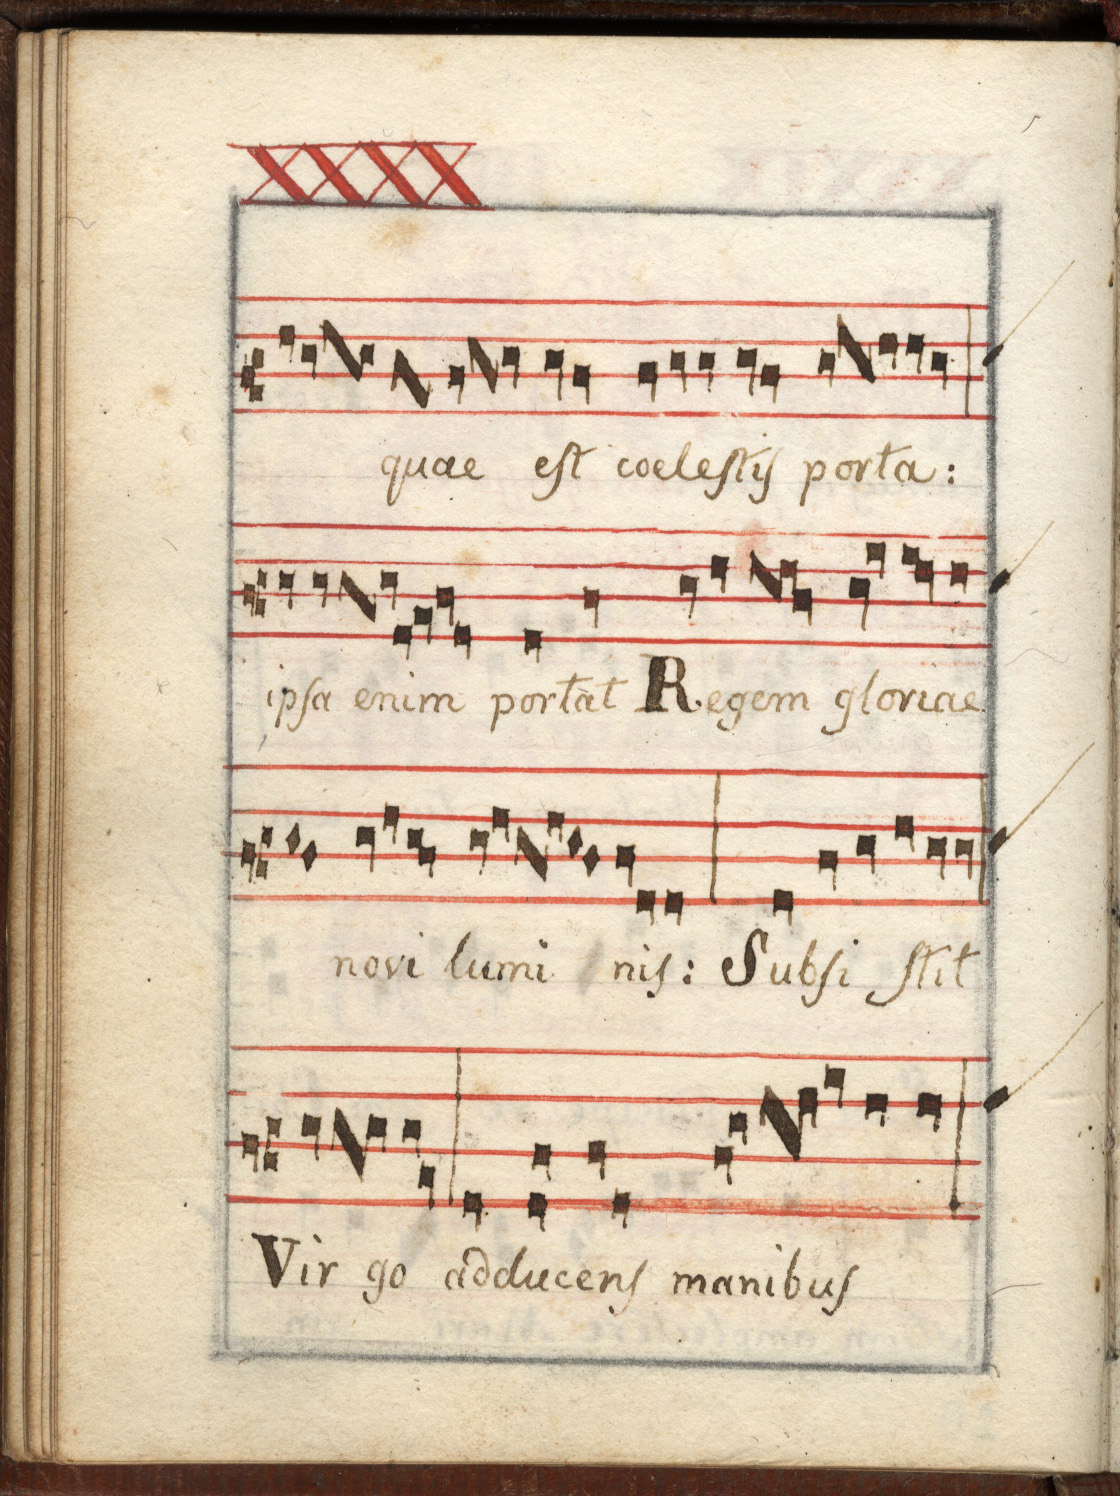 XXXX
quae est coelestis porta:
ipsa enim portat Regem gloriae
novi lumi nis: Subsi stit
Vir go adducens manibus